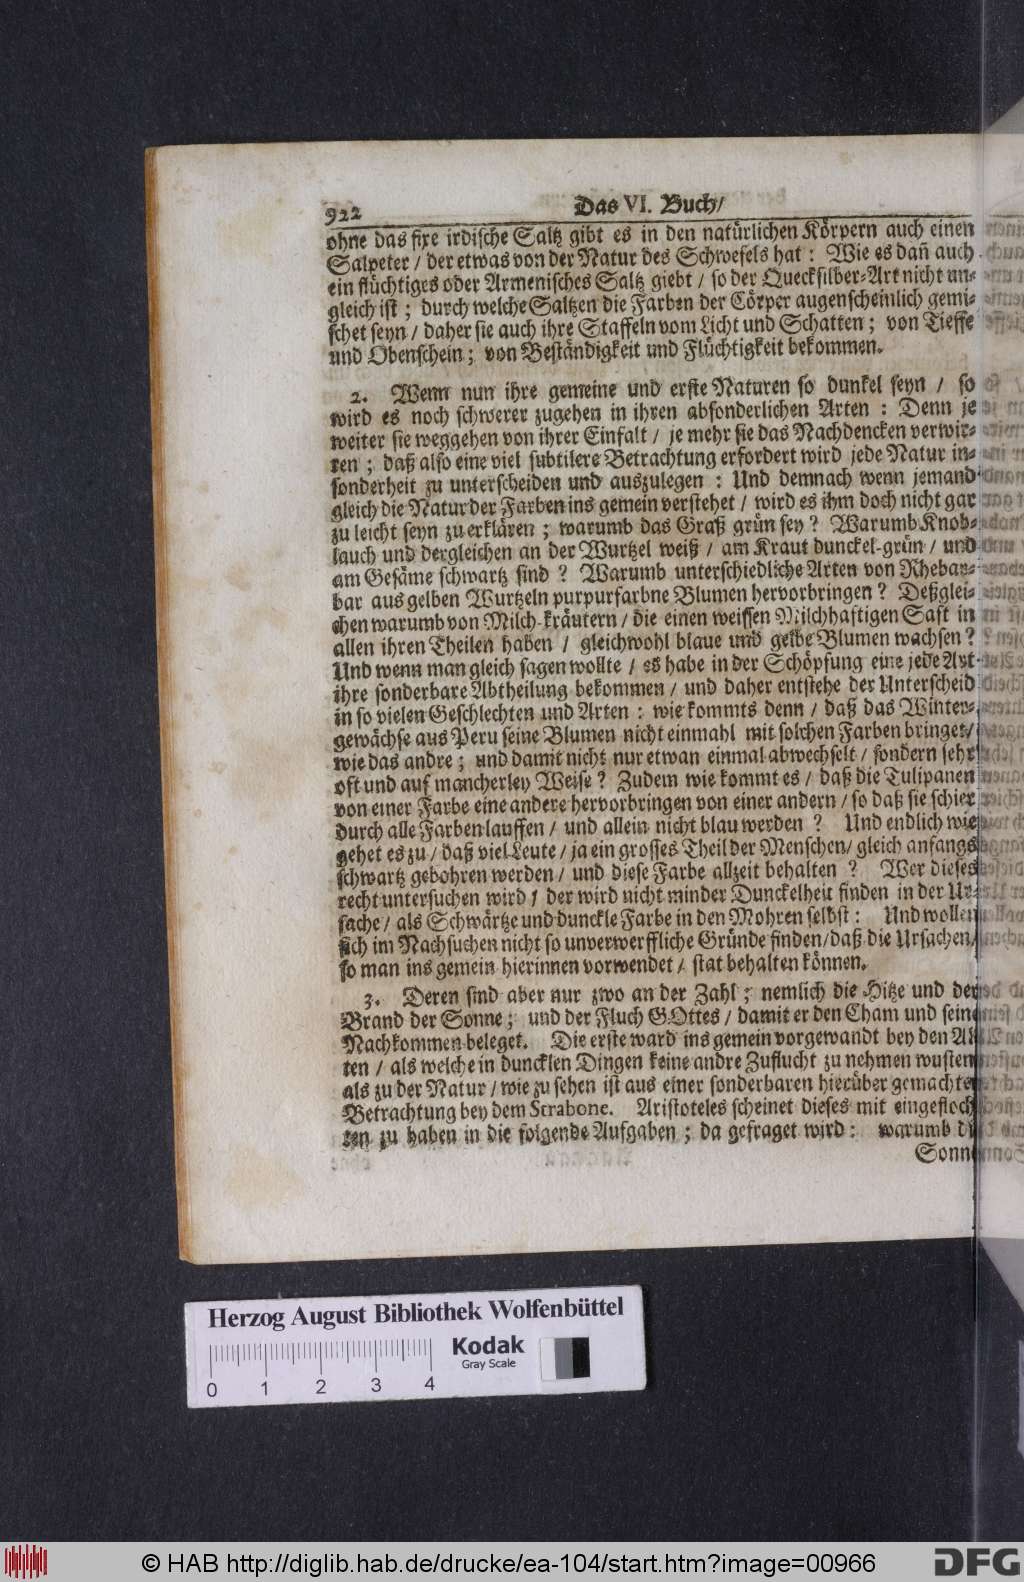 922
Das VI. Buch/
ohne das fixe irdische Saltz gibt es in den natürlichen Körpern auch einen
Salpeter / der etwas von der Natur des Schwefels hat : Wie es dañ auch
ein flüchtiges oder Armenisches Saltz giebt / so der Quecksilber-Art nicht un-
gleich ist ; durch welche Saltzen die Farben der Cörper augenscheinlich gemi-
schet seyn / daher sie auch ihre Staffeln vom Licht und Schatten ; von Tieffe
und Obenschein ; von Beständigkeit und Flüchtigkeit bekommen.
2. Wenn nun ihre gemeine und erste Naturen so dunkel seyn / so
wird es noch schwerer zugehen in ihren absonderlichen Arten : Denn je
weiter sie weggehen von ihrer Einfalt / je mehr sie das Nachdencken verwir-
ren ; daß also eine viel subtilere Betrachtung erfordert wird jede Natur in-
sonderheit zu unterscheiden und auszulegen : Und demnach wenn jemand
gleich die Natur der Farben ins gemein verstehet / wird es ihm doch nicht gar
zu leicht seyn zu erklären ; warumb das Graß grün sey ? Warumb Knob-
lauch und dergleichen an der Wurtzel weiß / am Kraut dunckel-grün / und
am Gesäme schwartz sind ? Warumb unterschiedliche Arten von Rhebar-
bar aus gelben Wurtzeln purpurfarbne Blumen hervorbringen ? Deßglei-
chen warumb von Milch-kräutern / die einen weissen Milchhaftigen Saft in
allen ihren Theilen haben / gleichwohl blaue und gelbe Blumen wachsen ?
Und wenn man gleich sagen wollte / es habe in der Schöpfung eine jede Art
ihre sonderbare Abtheilung bekommen / und daher entstehe der Unterscheid
in so vielen Geschlechten und Arten : wie kommts denn / daß das Winter-
gewächse aus Peru seine Blumen nicht einmahl mit solchen Farben bringet /
wie das andre ; und damit nicht nur etwan einmal abwechselt / sondern sehr
oft und auf mancherley Weise ? Zudem wie kommt es / daß die Tulipanen
von einer Farbe eine andere hervorbringen von einer andern / so daß sie schier
durch alle Farben lauffen / und allein nicht blau werden ? Und endlich wie
gehet es zu / daß viel Leute / ja ein grosses Theil der Menschen / gleich anfangs
schwartz gebohren werden / und diese Farbe allzeit behalten ? Wer dieses
recht untersuchen wird / der wird nicht minder Dunckelheit finden in der Ur-
sache / als Schwärtze und dunckle Farbe in den Mohren selbst : Und wollen
sich im Nachsuchen nicht so unverwerffliche Gründe finden / daß die Ursachen /
so man ins gemein hierinnen vorwendet / stat behalten können.
3. Deren sind aber nur zwo an der Zahl ; nemlich die Hitze und der
Brand der Sonne ; und der Fluch GOttes / damit er den Cham und seine
Nachkommen beleget. Die erste ward ins gemein vorgewandt bey den Al
ten / als welche in duncklen Dingen keine andre Zuflucht zu nehmen wusten
als zu der Natur / wie zu sehen ist aus einer sonderbaren hierüber gemachte
Betrachtung bey dem Strabone. Aristoteles scheinet dieses mit eingefloch
ten zu haben in die folgende Aufgaben ; da gefraget wird : warumb di
Sonn
Herzog August Bibliothek Wolfenbüttel
Kodak
Gray Scale
0 1 2 3 4
© HAB http://diglib.hab.de/drucke/ea-104/start.htm?image=00966
DFG